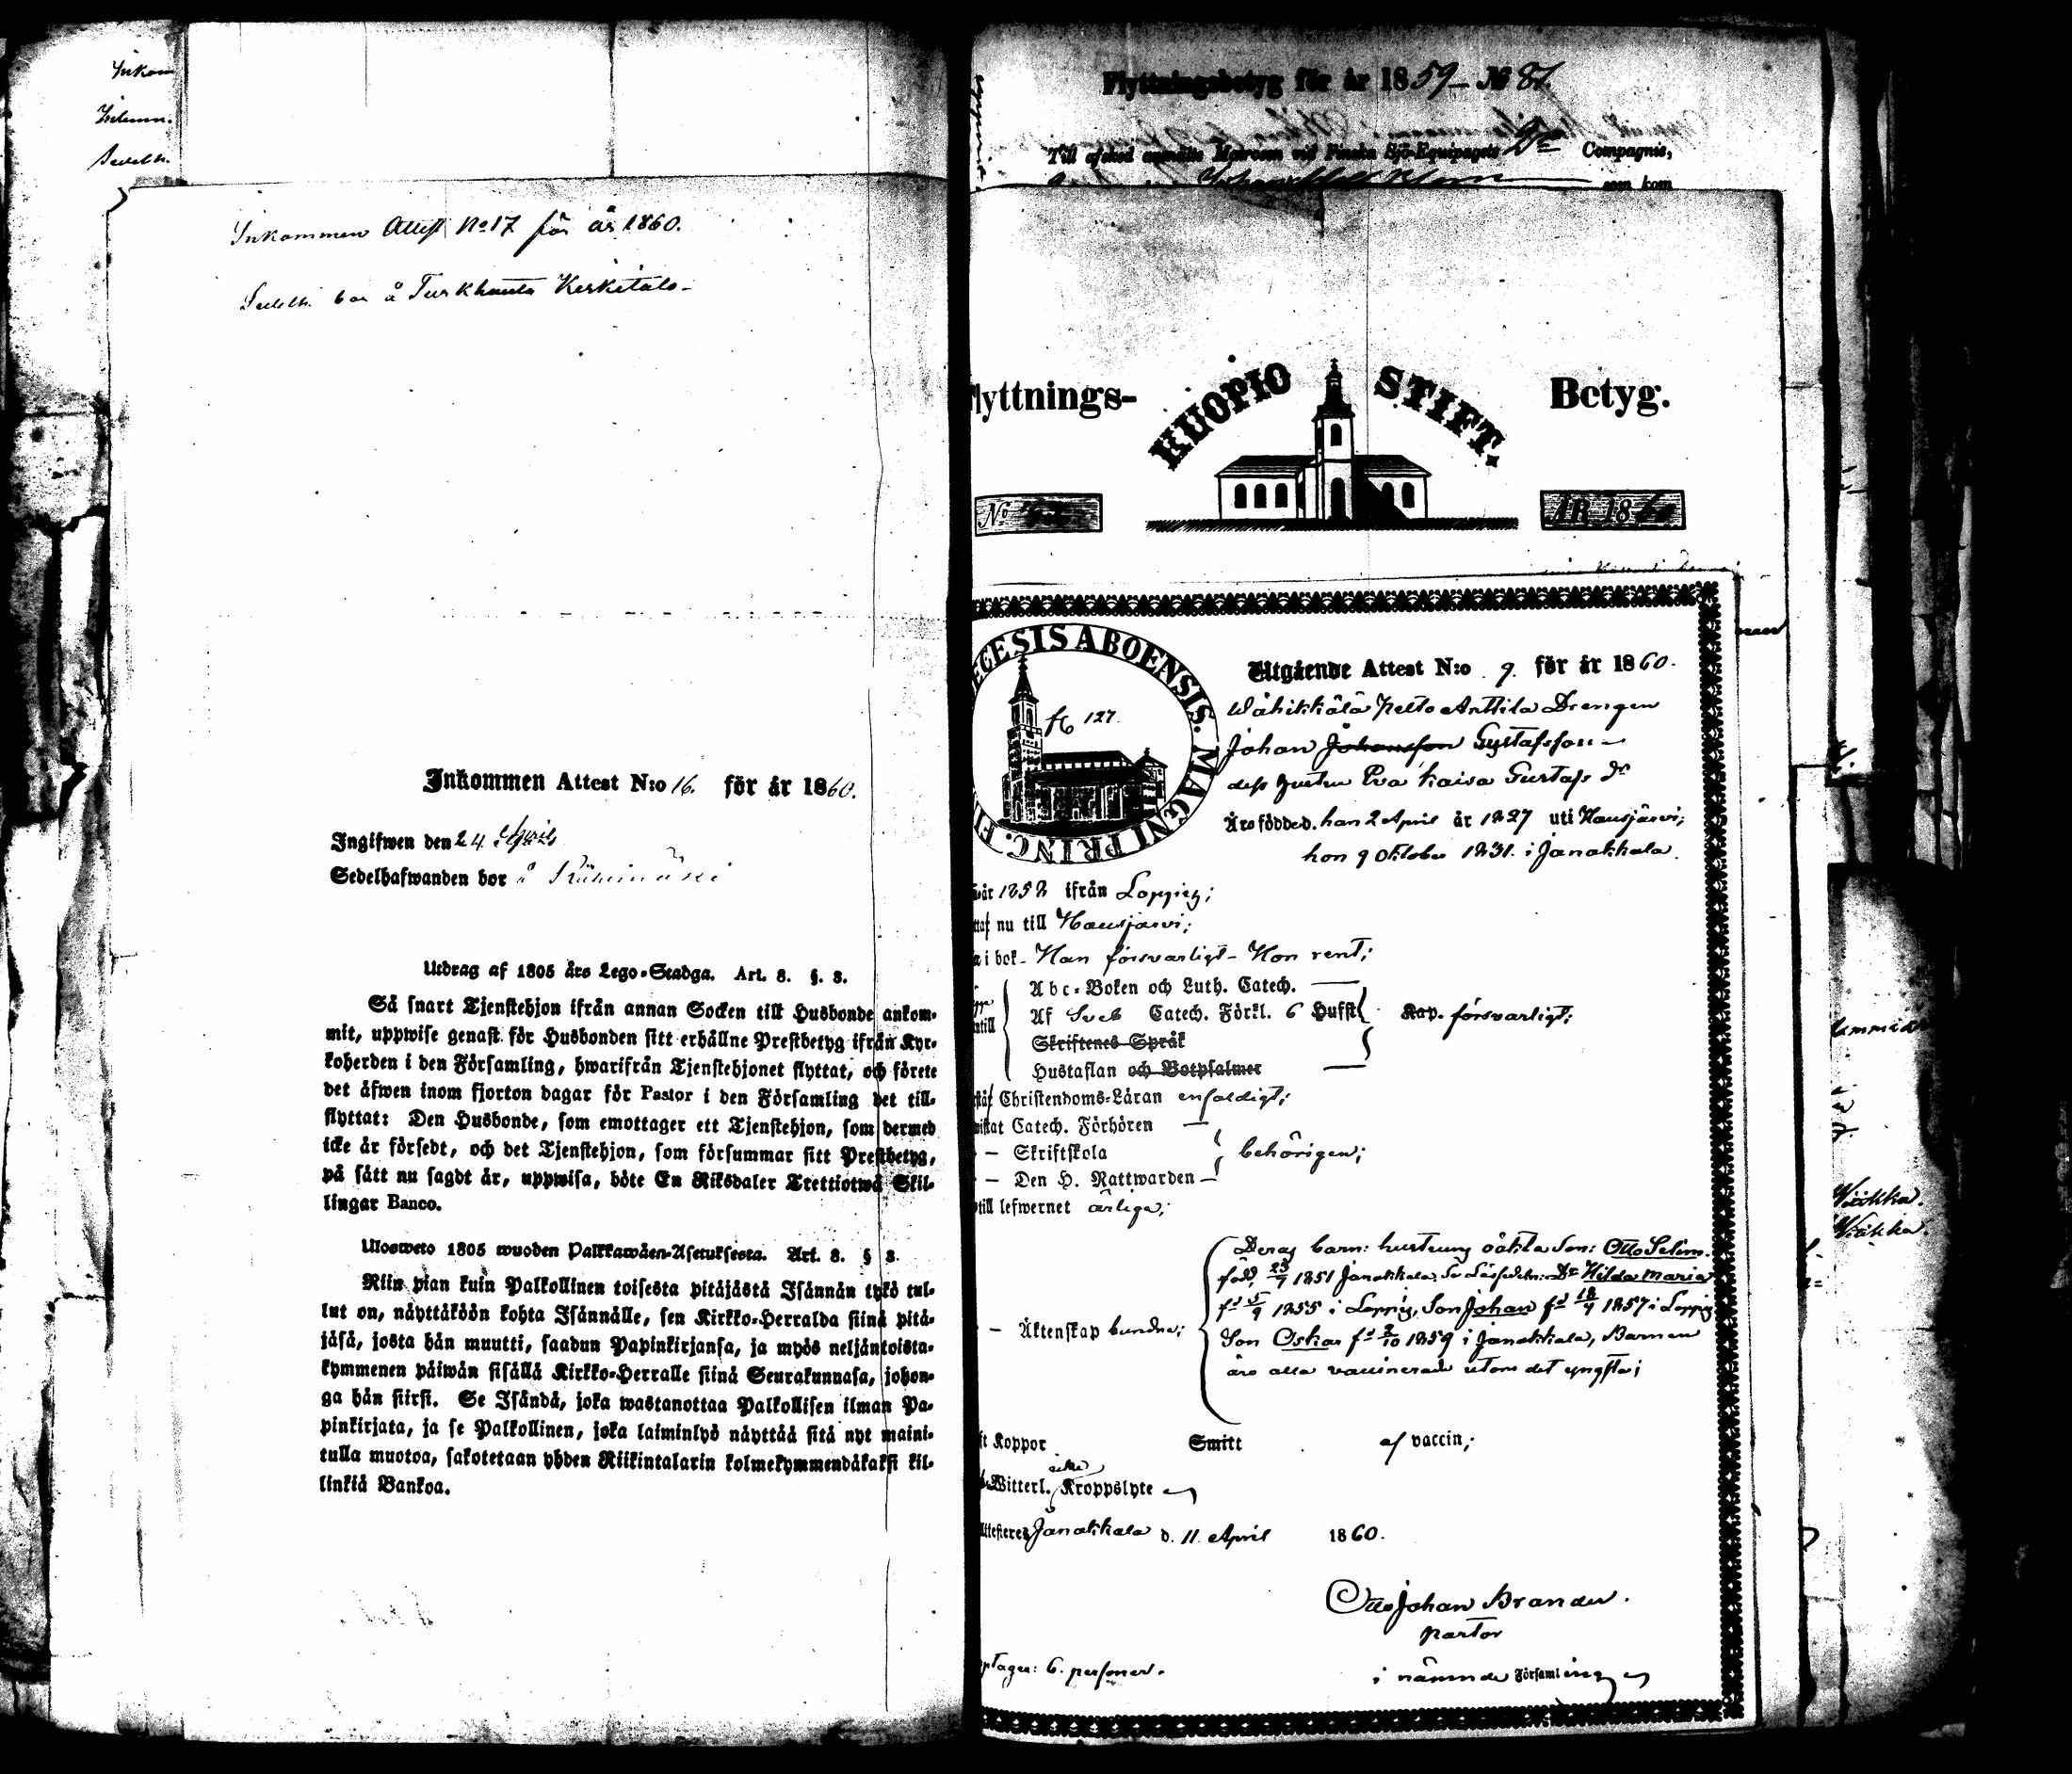 Inkom
Inkomm.
Sedelh.
Inkommen Attest No 17 för år 1860.
Sedelh. bor å Turkhauta Keskitalo -
Inkommen Attest N:o 16. för år 1860.
Ingifwen den 24 April
Sedelhafwanden bor å
Utdrag af 1805 års Lego-Stadga. Art. 8. §. 3.
Så snart Tjenstehjon ifrån annan Socken till Husbonde ankom-
mit, uppwise genast för Husbonden sitt erhållne Prestbetyg ifrån Kyr-
koherden i den Församling, hwarifrån Tjenstehjonet flyttat, och förete
det äfwen inom fjorton dagar för Pastor i den Församling det till-
flyttat: Den Husbonde, som emottager ett Tjenstehjon, som dermed
icke är försedt, och det Tjenstehjon, som försummar sitt Prestbetyg,
på sätt nu sagdt är, uppwisa, böte En Riksdaler Trettiotwå Skil-
lingar Banco.
Ulosweto 1805 wuoden Palkkawäen-Asetuksesta. Art. 8. § 3.
Niin pian kuin Palkollinen toisesta pitäjästä Isännän tykö tul-
lut on, näyttäköön kohta Isännälle, sen Kirkko-Herralda siinä pitä-
jäsä, josta hän muutti, saadun Papinkirjansa, ja myös neljäntoista-
kymmenen päiwän sisällä Kirkko-Herralle siinä Seurakunnasa, johon-
ga hän siirsi. Se Isändä, joka wastanottaa Palkollisen ilman Pa-
pinkirjata, ja se Palkollinen, joka laiminlyö näyttää sitä nyt maini-
tulla muotoa, sakotetaan yhden Riikintalarin kolmekymmendäkaksi kil-
linkiä Bankoa.
Flyttningsbetyg för år 1859 - No 87.
Till afsked anmälte Matrosen vid Finska Sjö-Equipagets Compagnie,
som kom
lyttnings- KUOPIO STIFT. Betyg.
No
ÅR 1860
ECESIS ABOENSIS. MAGNI PRINC. FI
f 127.
Utgående Attest N:o 9. för år 1860.
Wähikkälä Pelto Anttila Drengen
Johan Johansson Gustafsson
dess hustru Eva Kaisa Gustafs dr
Äro födde d. han 2 April år 1827 uti Hausjärvi;
hon 9 Oktober 1831. i Janakkala.
år 1858 ifrån Loppis;
nu till Hausjärvi;
i bok - Han försvarligt - Hon rent;
Abc-Boken och Luth. Catech.
Af Sveb Catech. Förkl. 6 Hufst Kap. försvarligt;
Skriftenes Språk
Hustaflan och Botpsalmer
Christendoms-Läran enfaldigt;
Catech. Förhören
— Skriftskola behörigen;
— Den H. Nattwarden
till lefwernet ärliga;
Deras barn: hustruns oäkta Son: Otto Selim.
född 23/7 1851 Janakkala. Dr Hilda Maria
fd 5/9 1855 i Loppis, Son Johan fd 18/4 1857 i Loppis
— Äktenskap bundna;
Son Oskar fd 2/10 1859 i Janakkala, Barnen
äro alla vaccinerade utom det yngsta;
Koppor Smitt af vaccin;
Witterl. icke Kroppslyte
Attesteres Janakkala d. 11 April 1860.
Otto Johan Brander.
Pastor
i nämnde Församling
ptager: 6. personer.
Wäkka.
Wäkka.